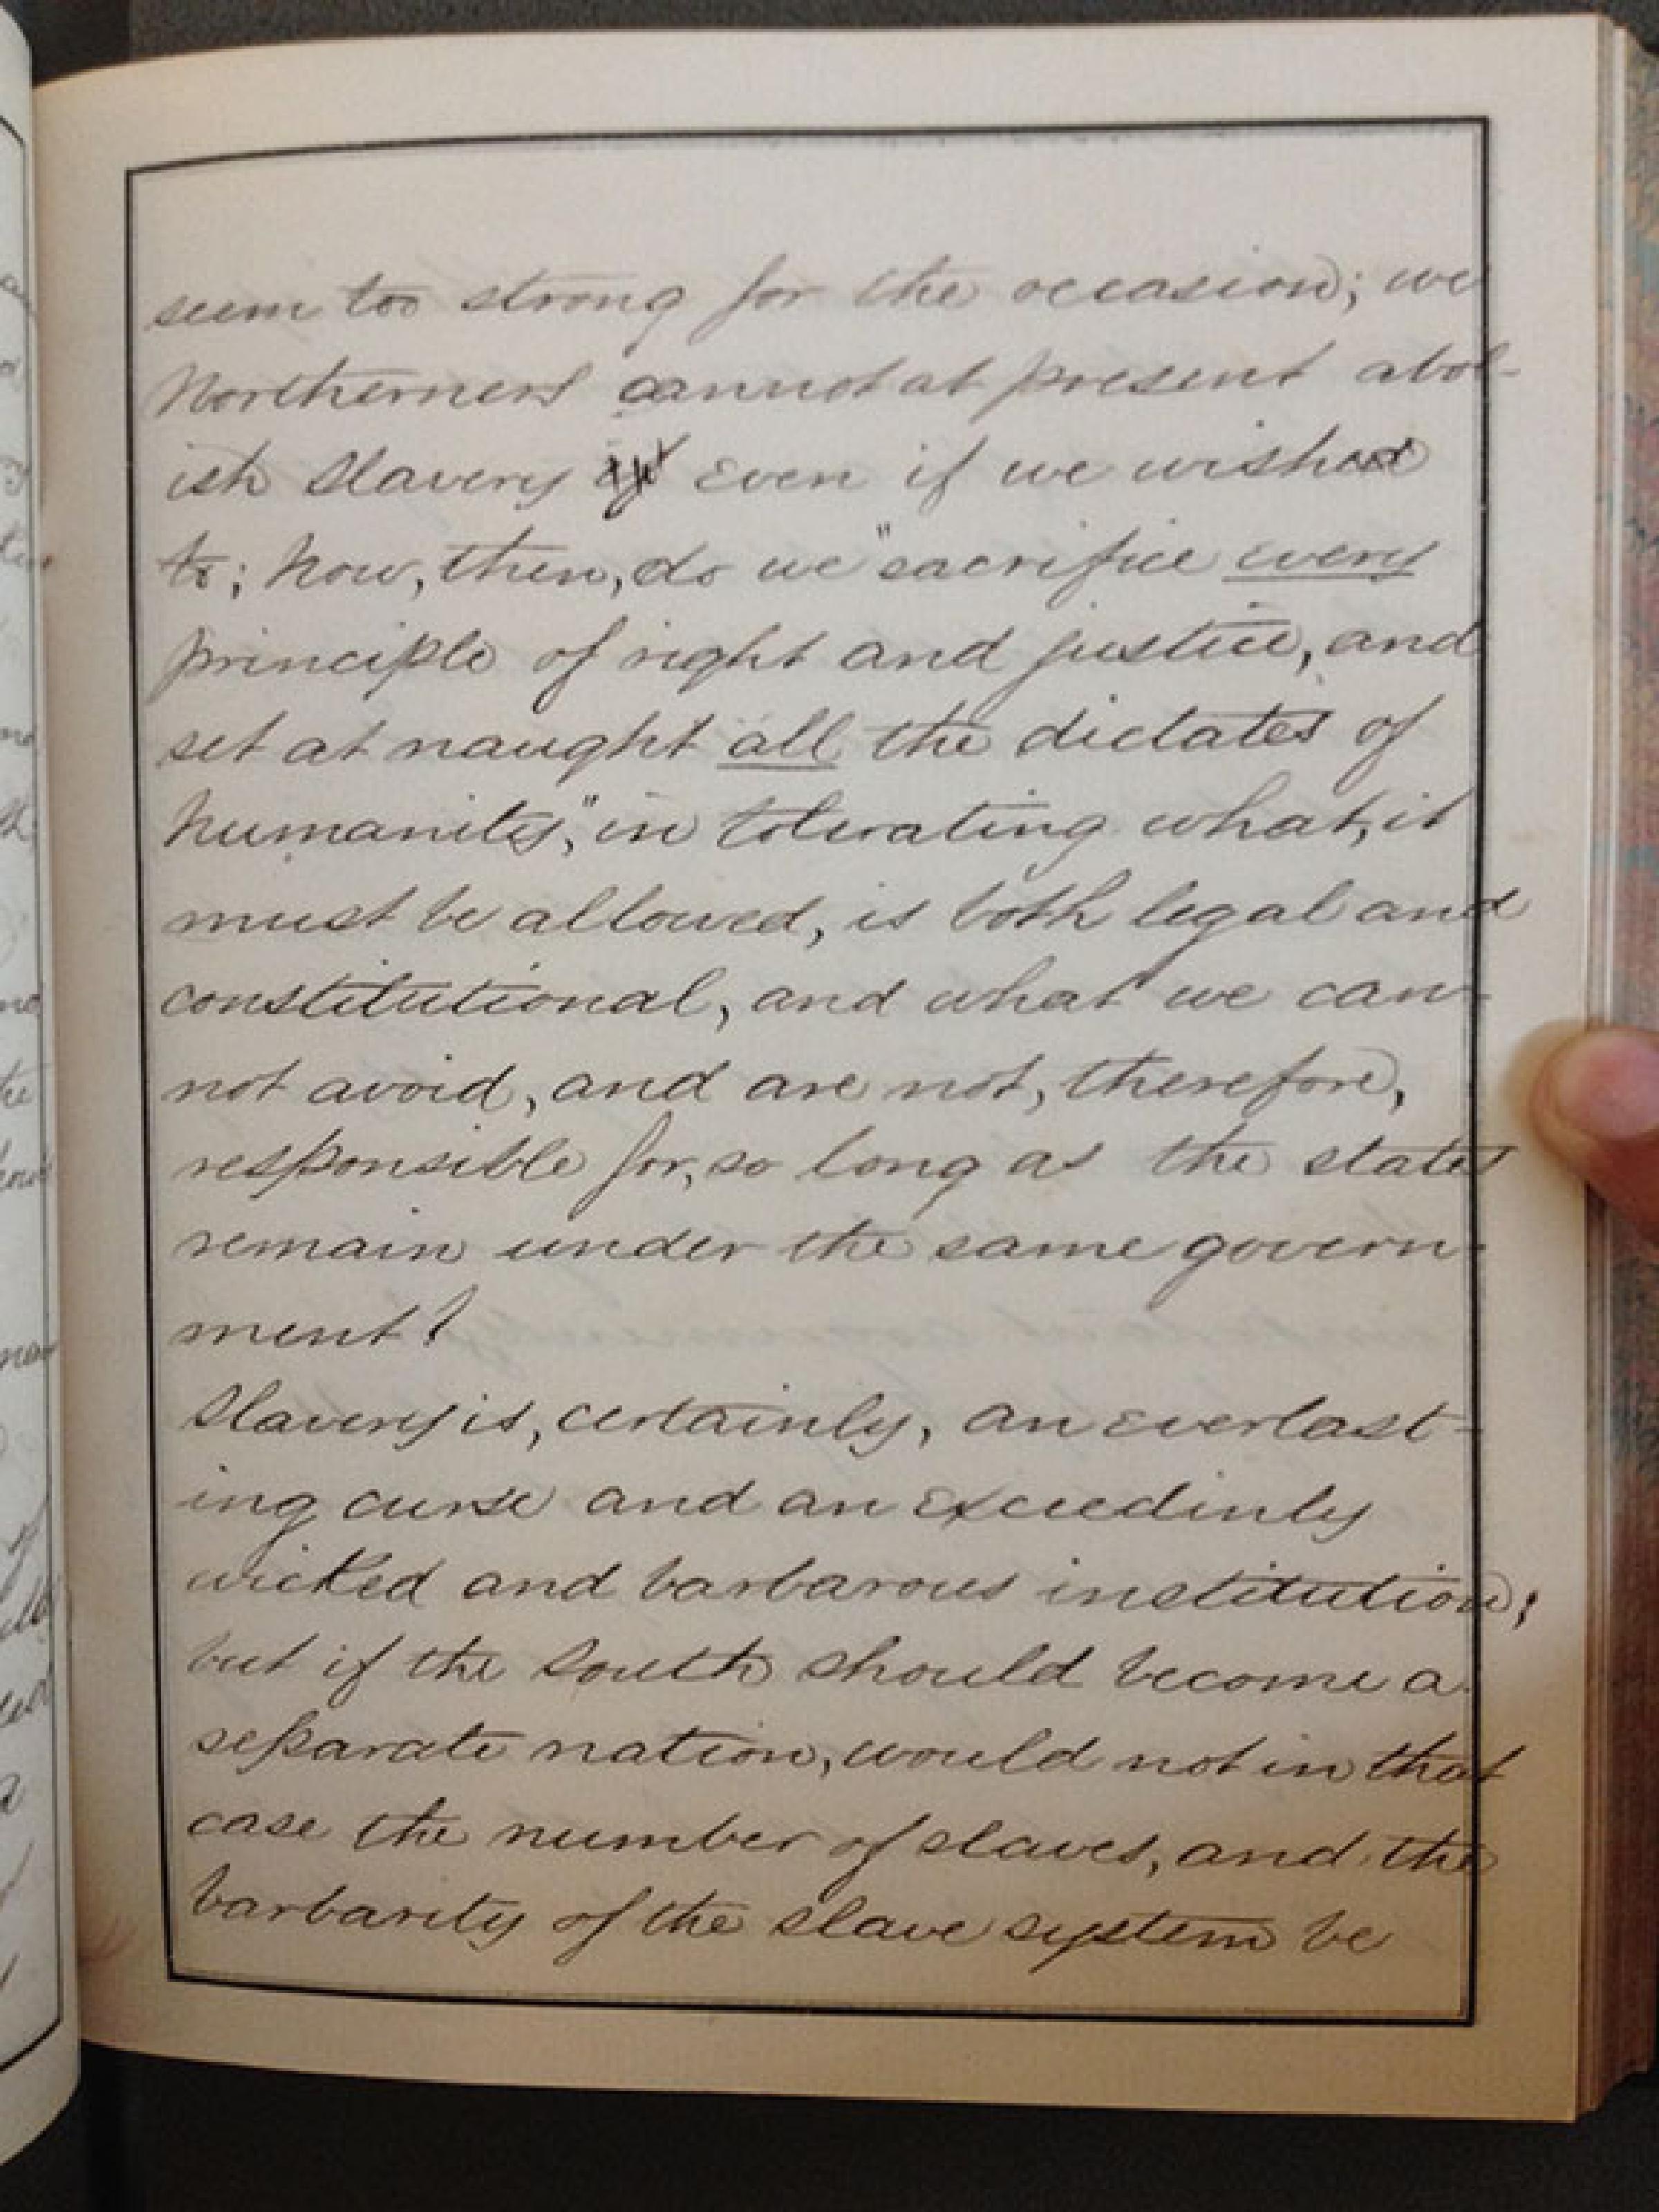 seem too strong for the occasion; we
Northerners cannot at present abol-
ish Slavery even if we wished
to; how, then, do we "sacrifice every
principle of right and justice, and
set at naught all the dictates of
humanity," in tolerating what, it
must be allowed, is both legal and
constitutional, and what we can-
not avoid, and are not, therefore,
responsible for, so long as the states
remain under the same govern-
ment?
Slavery is, certainly, an everlast-
ing curse and an exceedinly
wicked and barbarous institution;
but if the South should become a
separate nation, would not in that
case the number of slaves, and the
barbarity of the slave system be